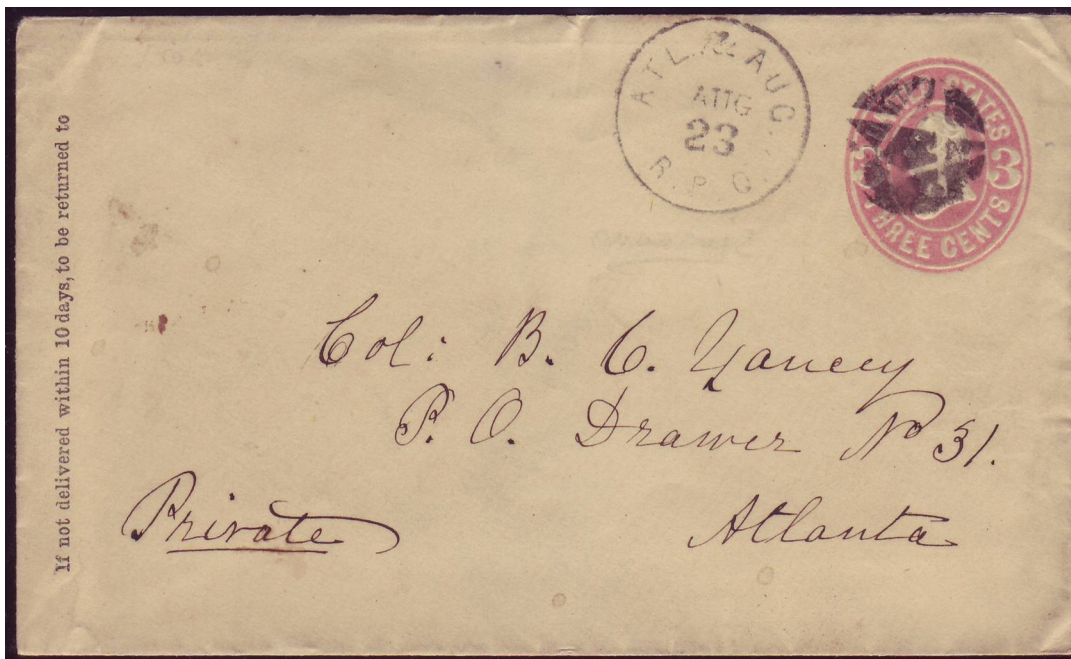 If not delivered within 10 days, to be returned to
ATL. & AUG.
AUG
23
R. P. O.
UNITED STATES
3 3
THREE CENTS
Col: B. C. Yancey
P. O. Drawer No 31.
Private
Atlanta